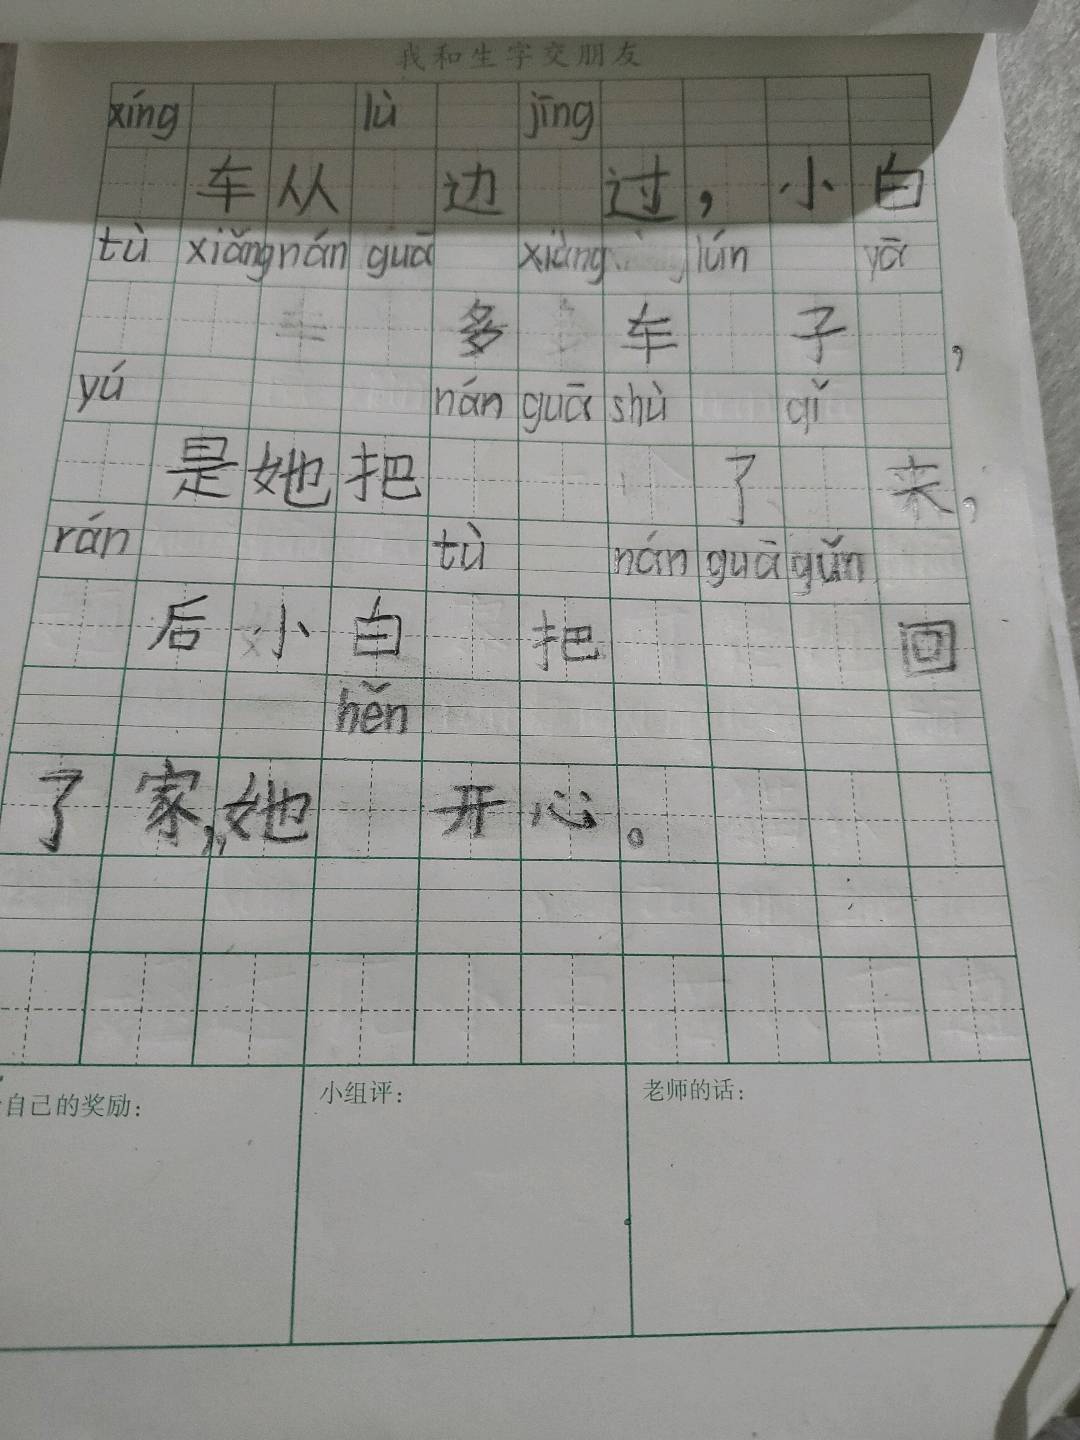 我和生字交朋友
xíng lù jīng
车从 边 过，小白
tù xiǎng nán guā xiàng lún yā
多 车 子，
yú nán guā shù qǐ
是她把 了 来，
rán tù nán guā gǔn
后小白 把 回
hěn
了家，她 开心。
自己的奖励：
小组评：
老师的话：